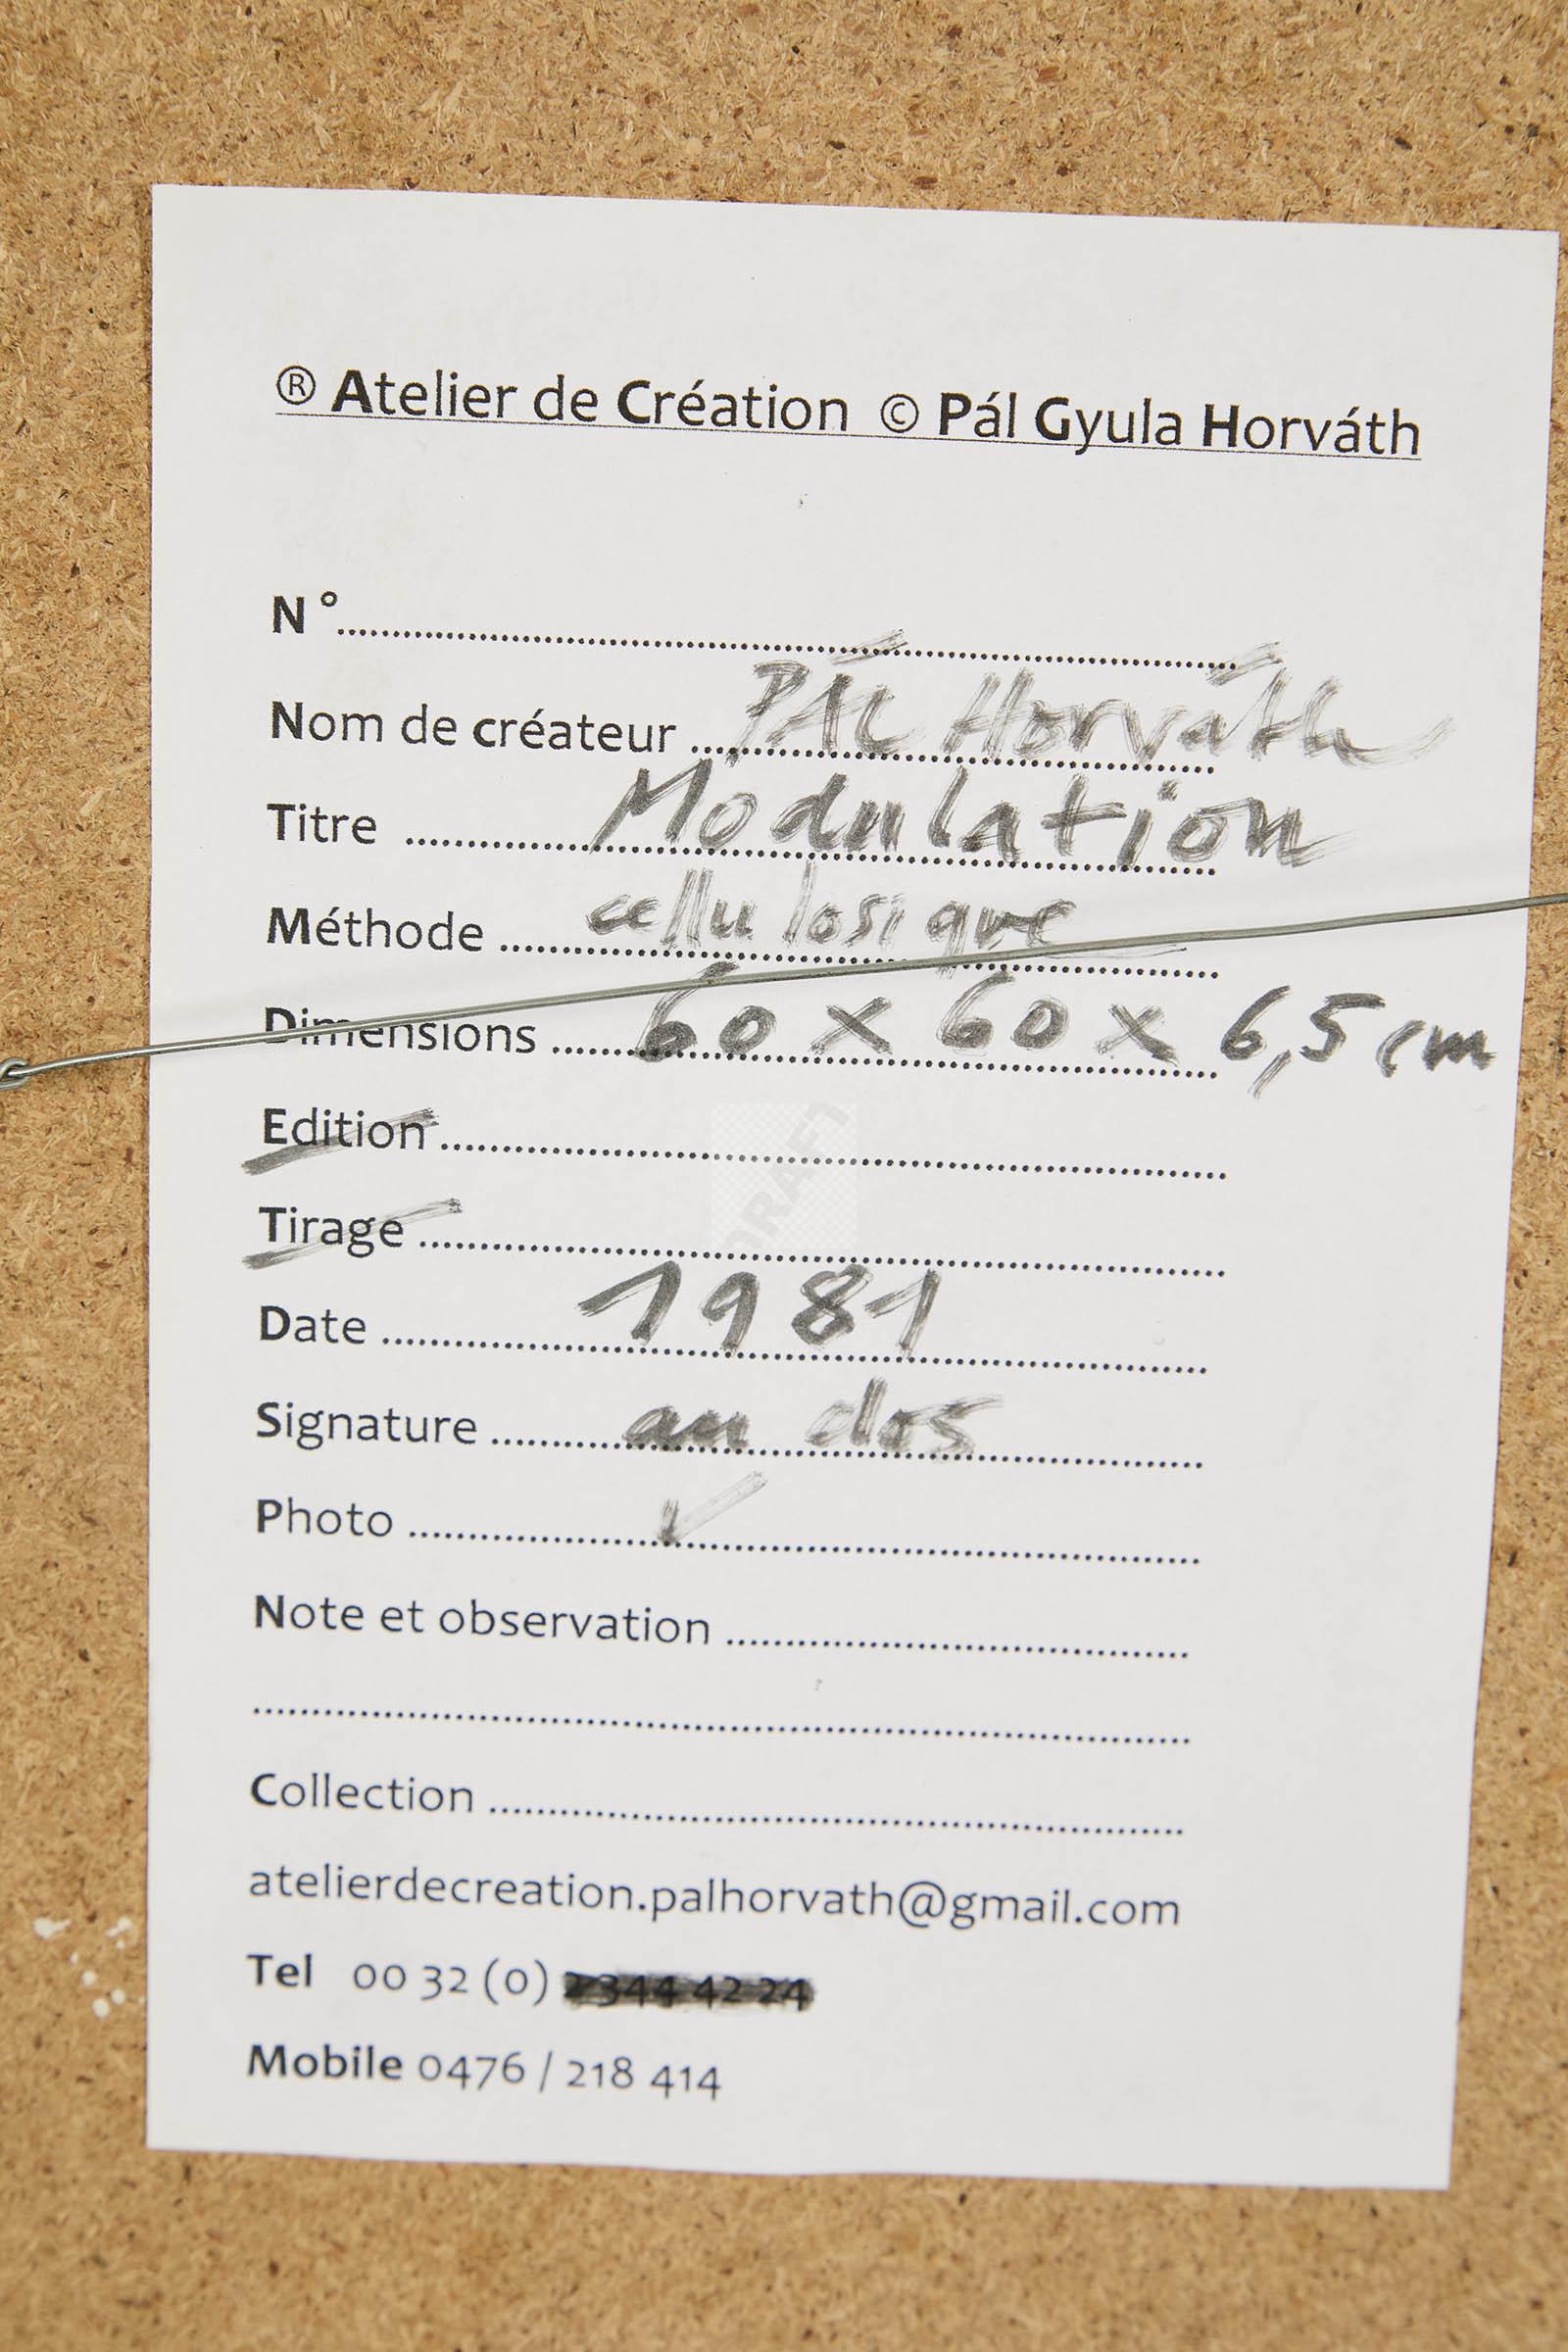 ® Atelier de Création © Pál Gyula Horváth
N°..........
Nom de créateur ..... PÁL Horváth
Titre ..... Modulation
Méthode ..... cellulosique
Dimensions ..... 60 x 60 x 6,5 cm
Edition ..........
Tirage ..........
Date ..... 1981
Signature ..... au dos
Photo ..... ✓
Note et observation ..........
..........
Collection ..........
atelierdecreation.palhorvath@gmail.com
Tel 00 32 (0)
Mobile 0476 / 218 414
DRAFT